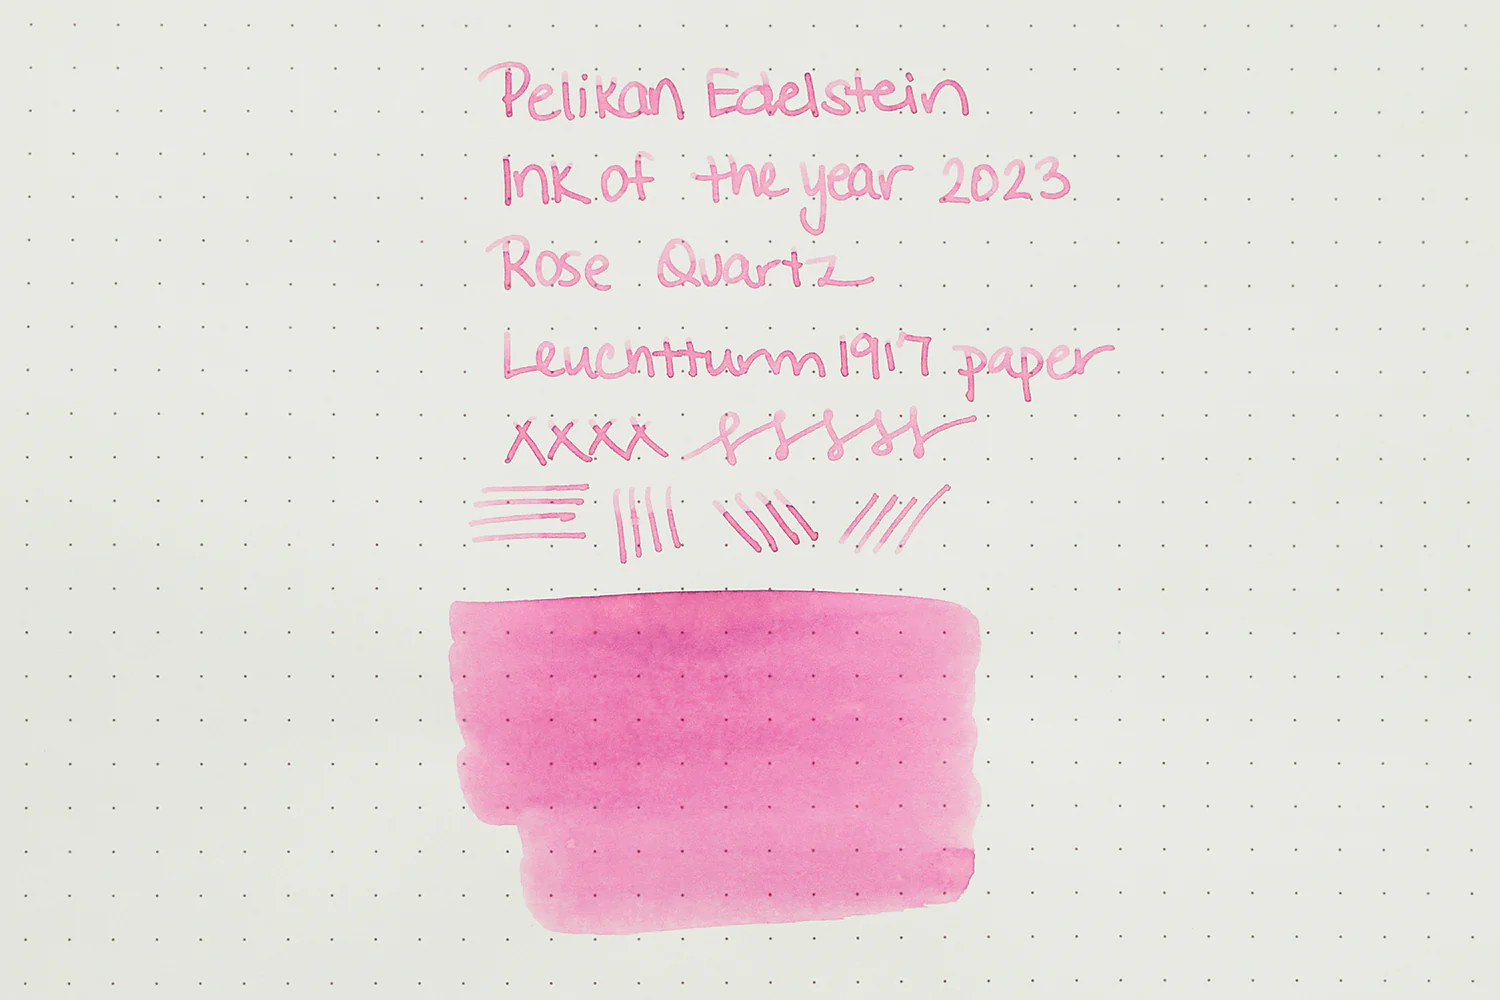 Pelikan Edelstein
Ink of the year 2023
Rose Quartz
Leuchtturm 1917 paper
xxxx